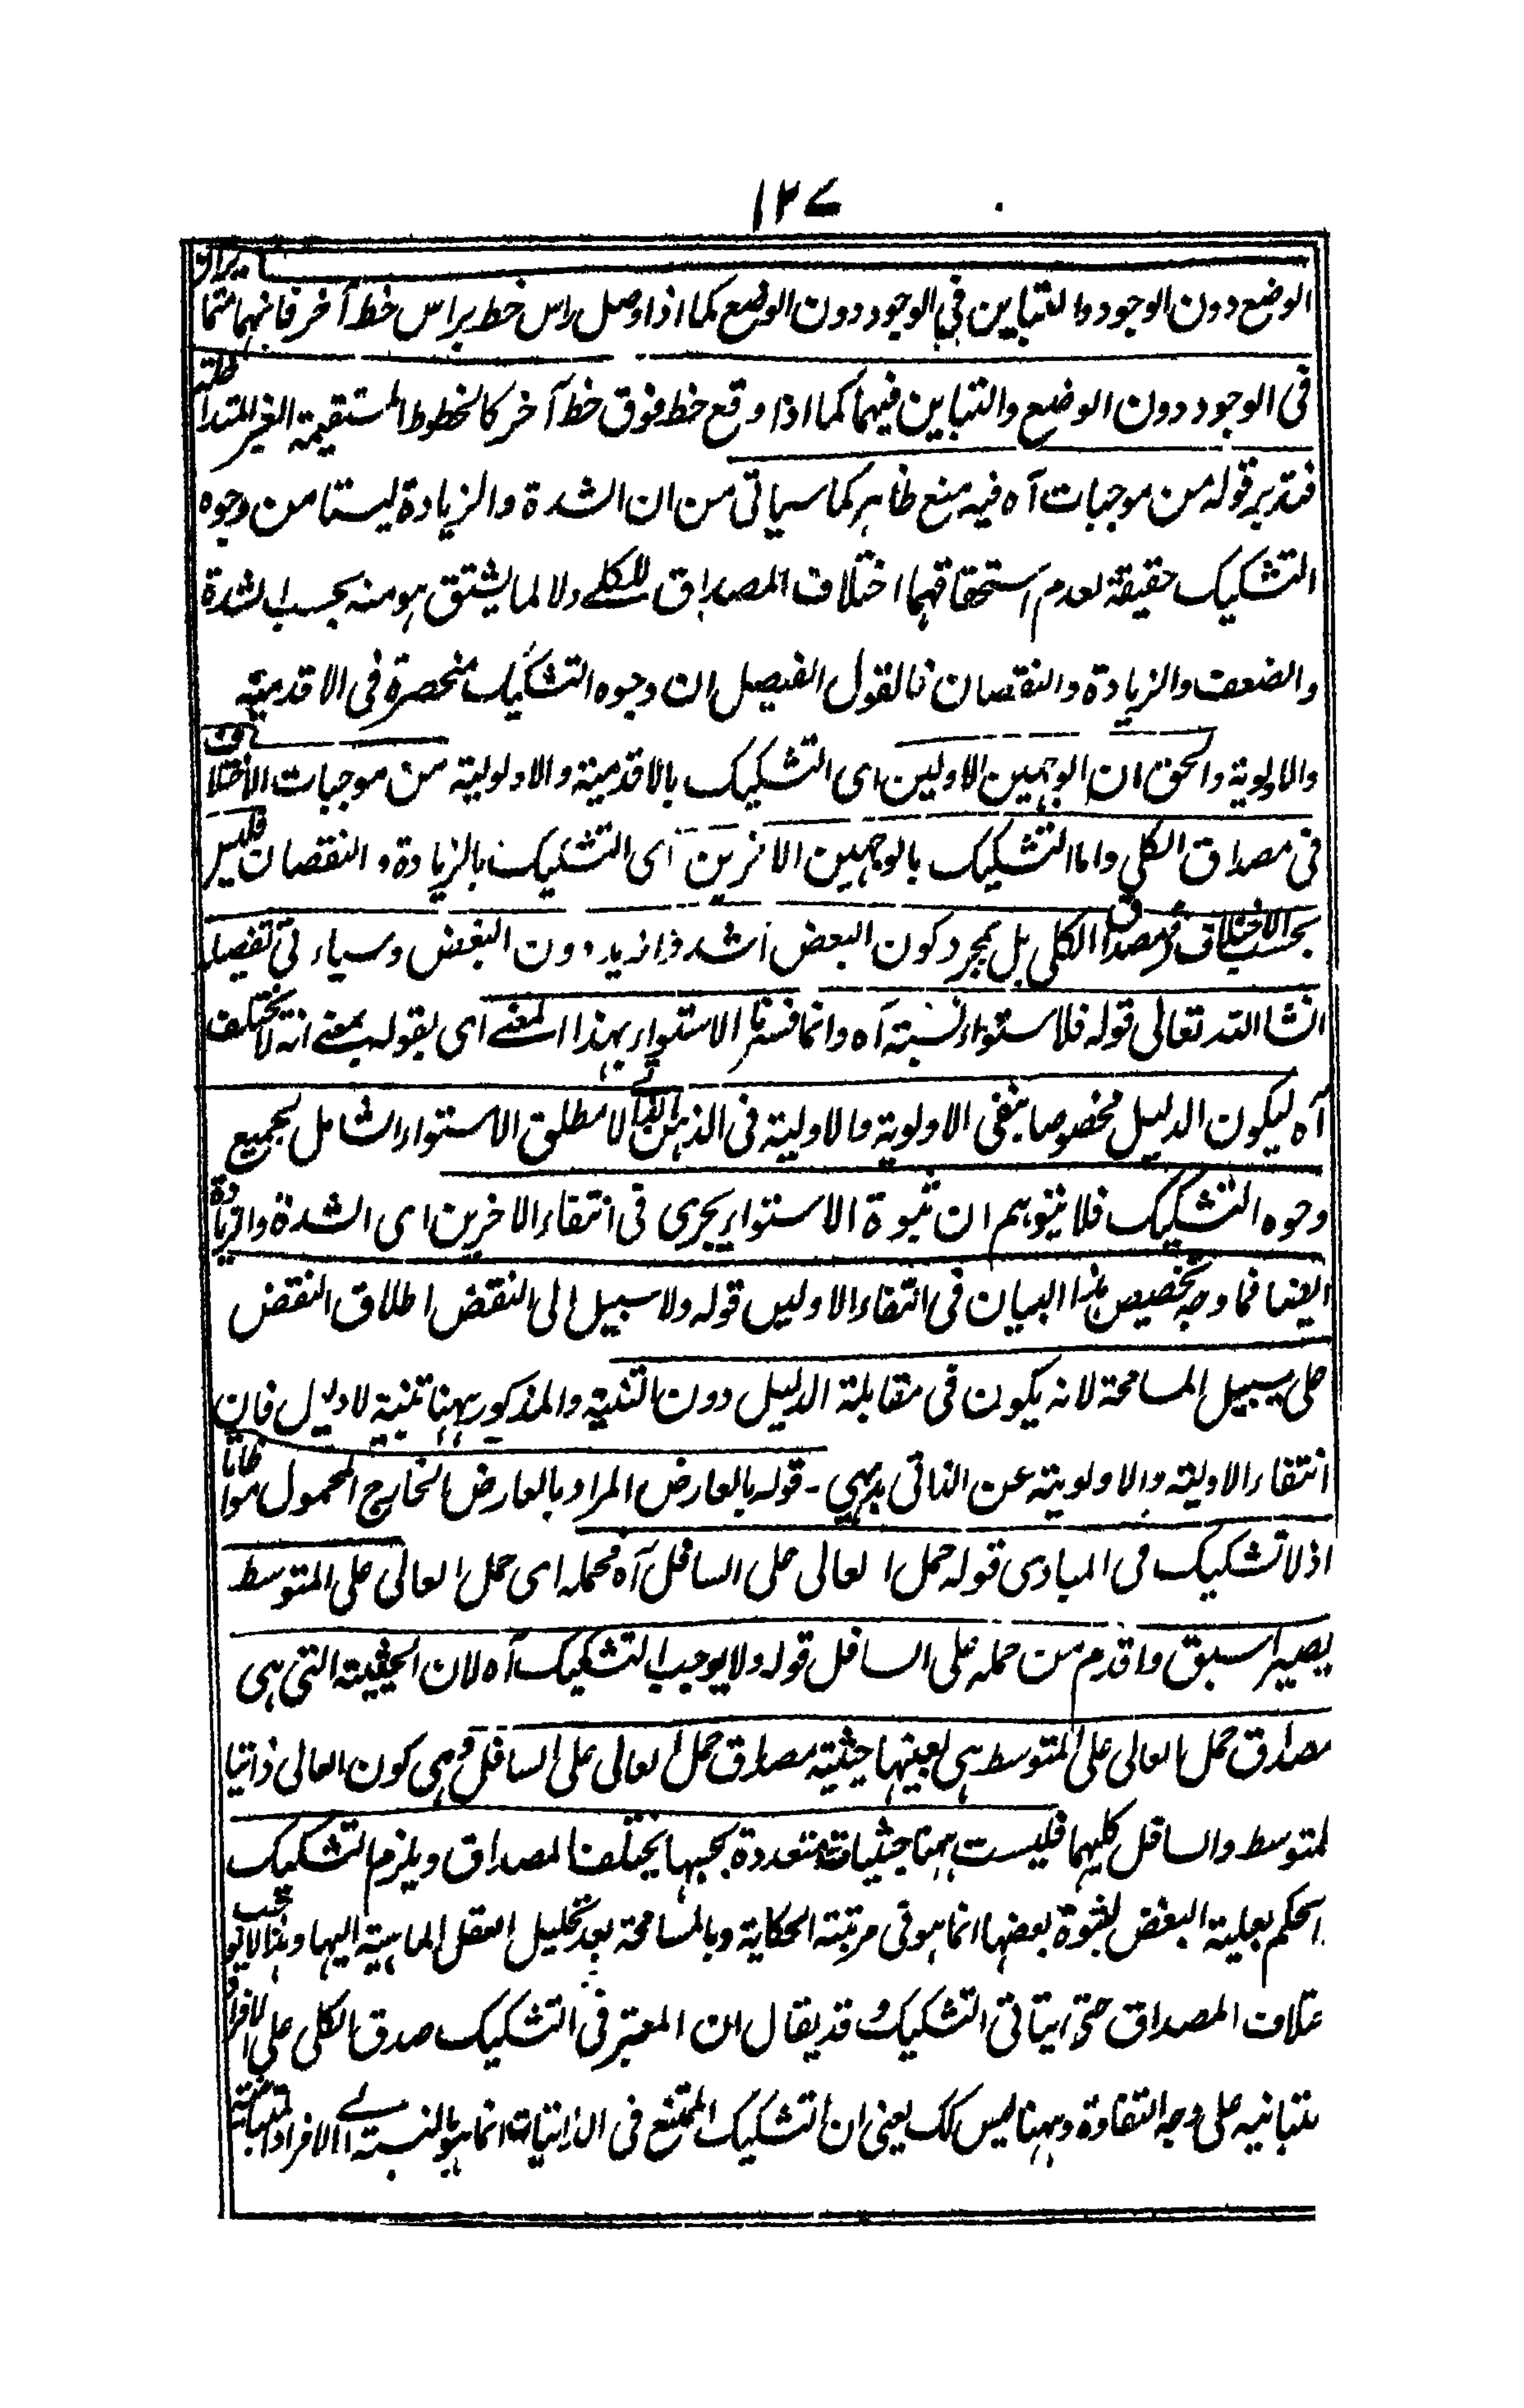 ١٢٧
الوضع دون الوجود والتباين في الوجود دون الوضع كما اذا وصل راس خط براس خط آخر فانهما متمايزان
في الوجود دون الوضع والتباين فيهما كما اذا وقع خط فوق خط آخر كالخطوط المستقيمة الغير المتداخلة
فتدبر قوله من موجبات آه فيه منع ظاهر كما سياتى من ان الشدة والزيادة ليستا من وجوه
التشكيك حقيقة لعدم استحقاقهما اختلاف المصداق للكلے ولا لما يشتق هو منه بحسب الشدة
والضعف والزيادة والنقصان فالقول الفيصل ان وجوه التشكيك منحصرة في الاقدمية
والاولوية والحق ان الوجهين الاولين اى التشكيك بالاقدمية والاولوية من موجبات الاختلاف
في مصداق الكلي واما التشكيك بالوجهين الاخرين اى التشكيك بالزيادة و النقصان فليس
بحسب الاختلاف في مصداق الكلى بل بمجرد كون البعض اشد وازيد دون البعض وسياتى تفصيله
انشا الله تعالى قوله فلاستواء نسبته آه وانما فسرنا الاستواء بهذا المعنے اى بقوله بمعنے انه لا يختلف
آه ليكون الدليل مخصوصا بنفى الاولوية والاولية فى الذاتى لا مطلق الاستواء الشامل لجميع
وجوه التشكيك فلا يتوهم ان ثبوة الاستواء يجرى فى انتفاء الاخرين اى الشدة والزيادة
ايضا فما وجه تخصيص هذا البيان فى انتفاء الاولين قوله ولا سبيل الى النقض اطلاق النقض
على سبيل المسامحة لانه يكون فى مقابلة الدليل دون التنبيه والمذكور ههنا تنبيه لا دليل فان
انتفاء الاولية والاولوية عن الذاتى بديهي - قوله بالعارض المراد بالعارض الخارج المحمول مواطاة
اذ لا تشكيك فى المبادى قوله حمل العالى على السافل آه فحمله اى حمل العالى على المتوسط
يصير اسبق واقدم من حمله على السافل قوله ولا يوجب التشكيك آه لان الحيثية التى هى
مصداق حمل العالى على المتوسط هى بعينها حيثية مصداق حمل العالى على السافل وهى كون العالى ذاتيا
لمتوسط والسافل كليهما فليست ههنا حيثيات متعددة بحسبها يختلف المصداق ويلزم التشكيك
الحكم بعلية البعض لثبوة بعضها انما هو فى مرتبة الحكاية وبالمسامحة بعد تحليل العقل الماهية اليها وهذا لا يوجب
ختلاف المصداق حتى يتاتى التشكيك وقد يقال ان المعتبر فى التشكيك صدق الكلى على الافراد
متبانيه على وجه التفاوة وههنا ليس كك يعنى ان التشكيك الممتنع فى الذاتيات انما هو بالنسبة الے الافراد المتبائنة